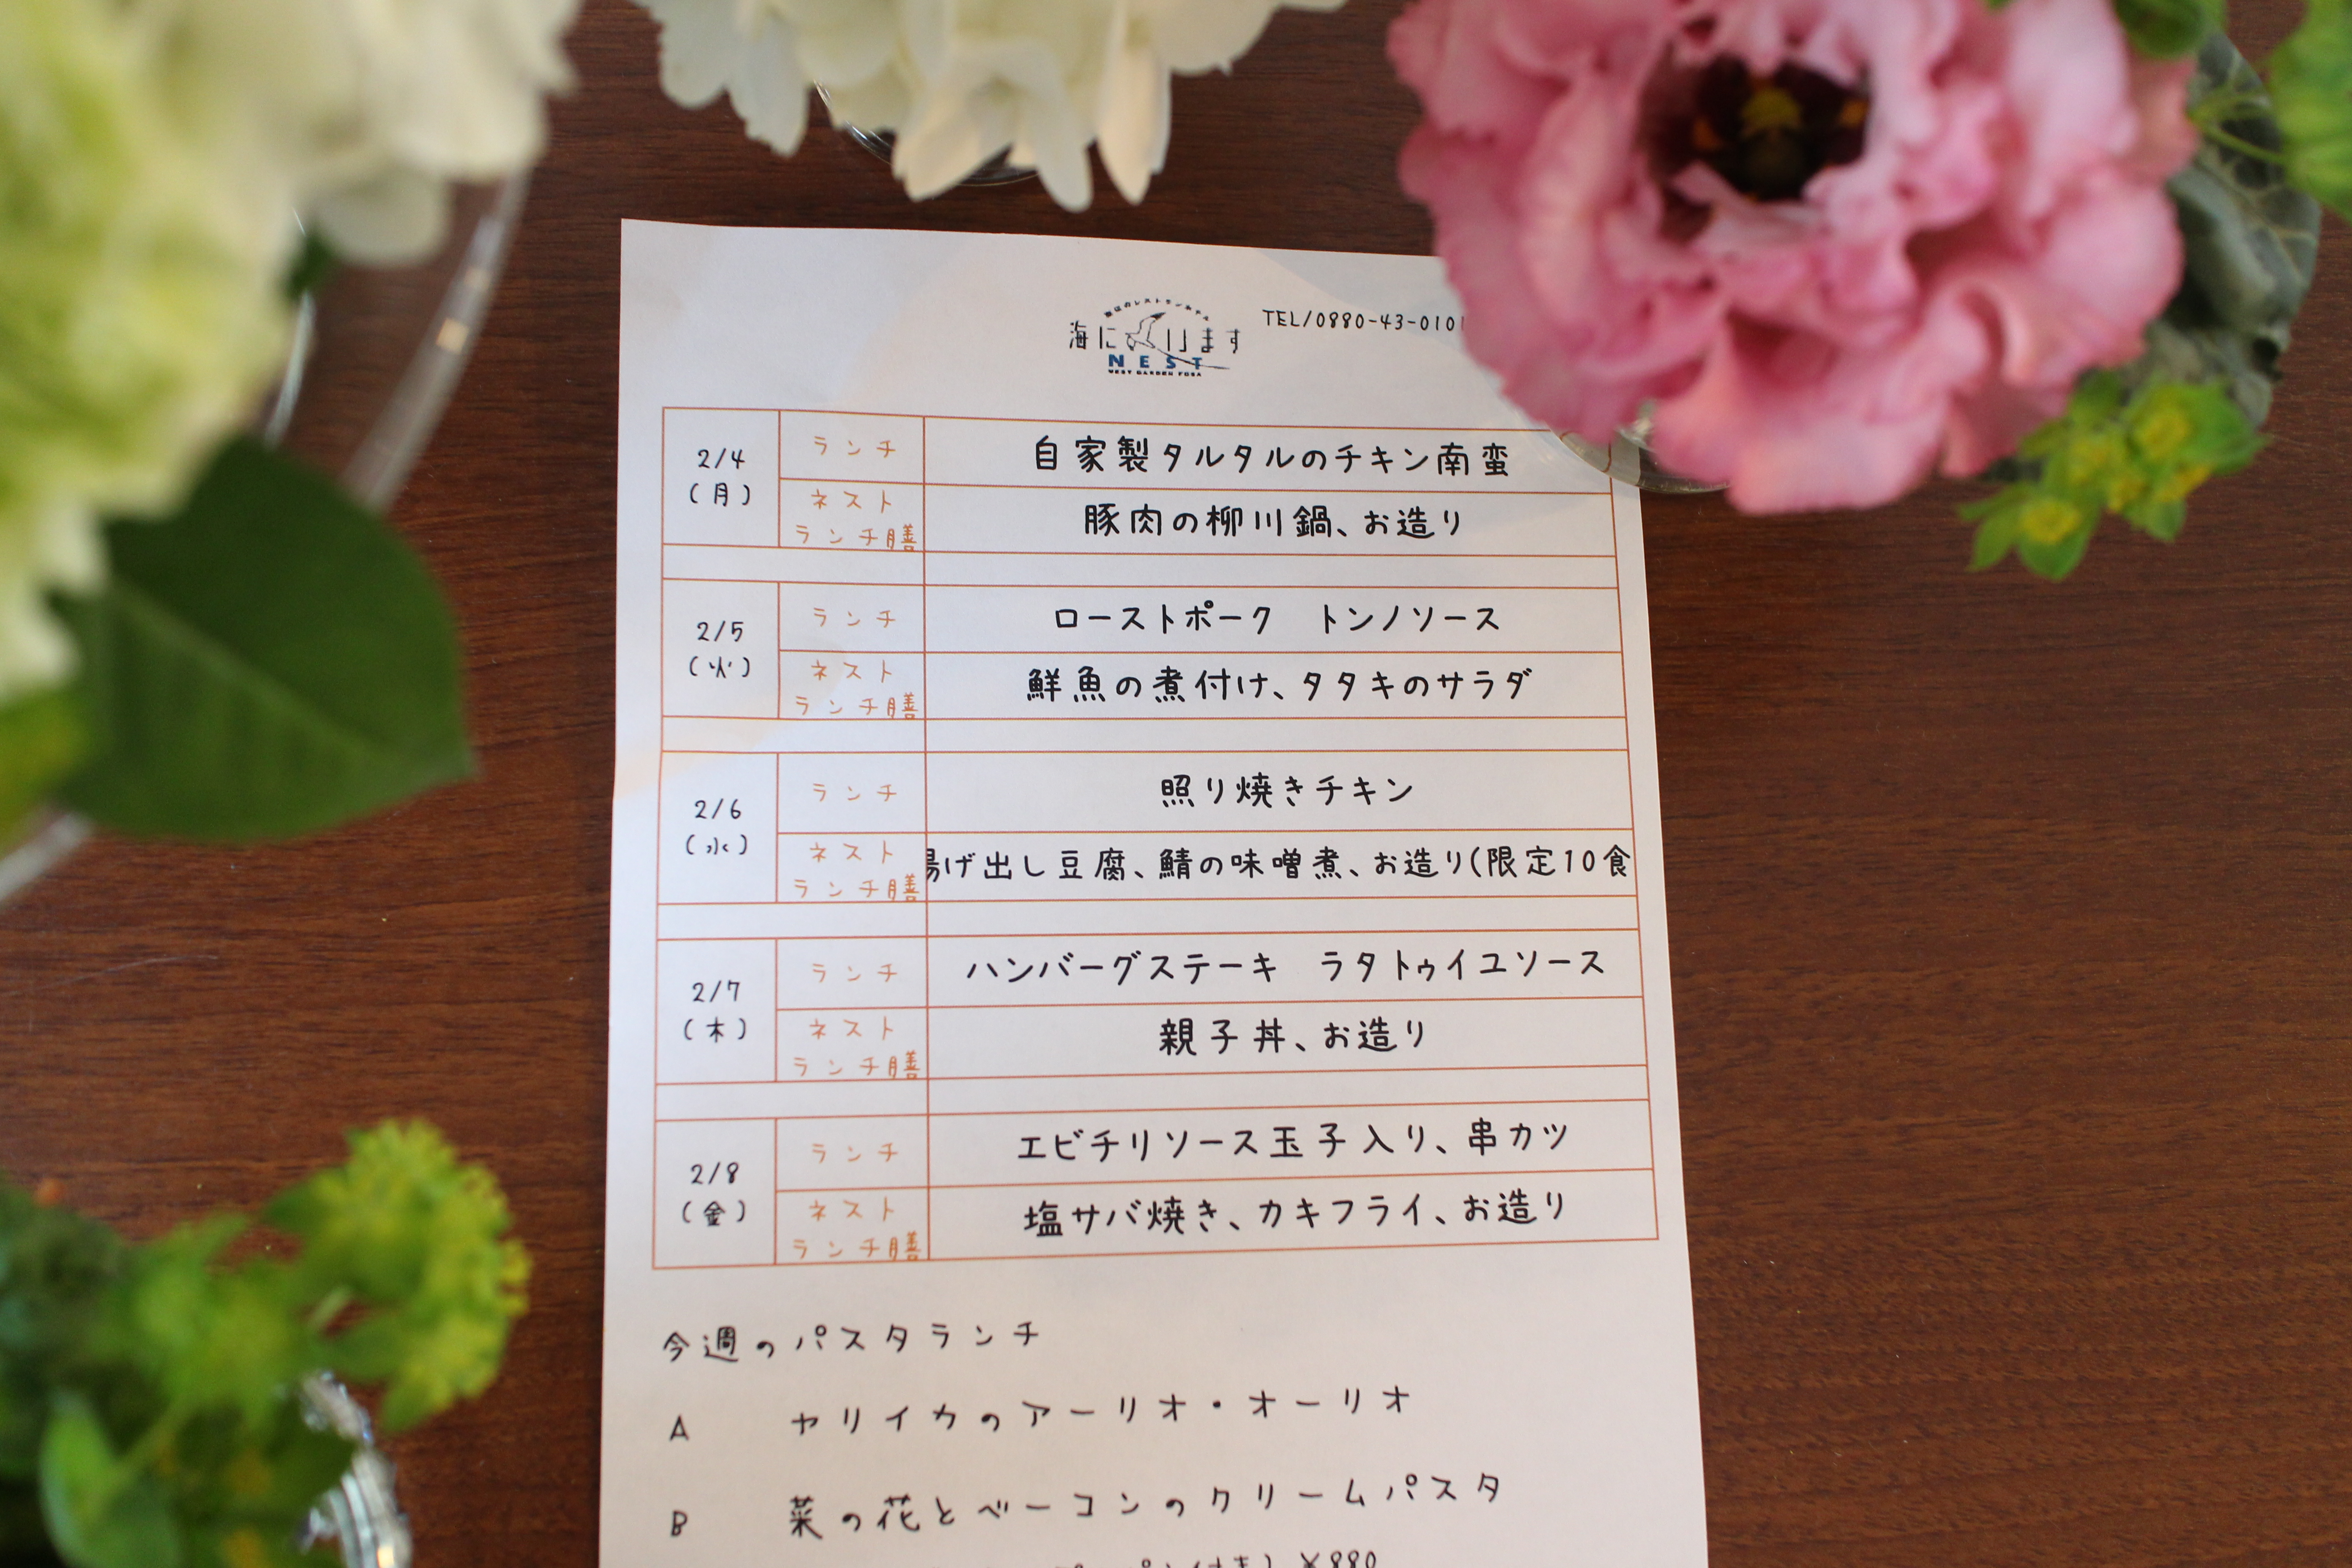 海に
います
NEST
WEST GARDEN TOSA
TEL/0880-43-0101
2/4
(月)
ランチ
自家製タルタルのチキン南蛮
ネスト
ランチ膳
豚肉の柳川鍋、お造り
2/5
(火)
ランチ
ローストポーク　トンノソース
ネスト
ランチ膳
鮮魚の煮付け、タタキのサラダ
2/6
(水)
ランチ
照り焼きチキン
ネスト
ランチ膳
揚げ出し豆腐、鯖の味噌煮、お造り(限定10食
2/7
(木)
ランチ
ハンバーグステーキ　ラタトゥイユソース
ネスト
ランチ膳
親子丼、お造り
2/8
(金)
ランチ
エビチリソース玉子入り、串カツ
ネスト
ランチ膳
塩サバ焼き、カキフライ、お造り
今週のパスタランチ
A　ヤリイカのアーリオ・オーリオ
B　菜の花とベーコンのクリームパスタ
¥880